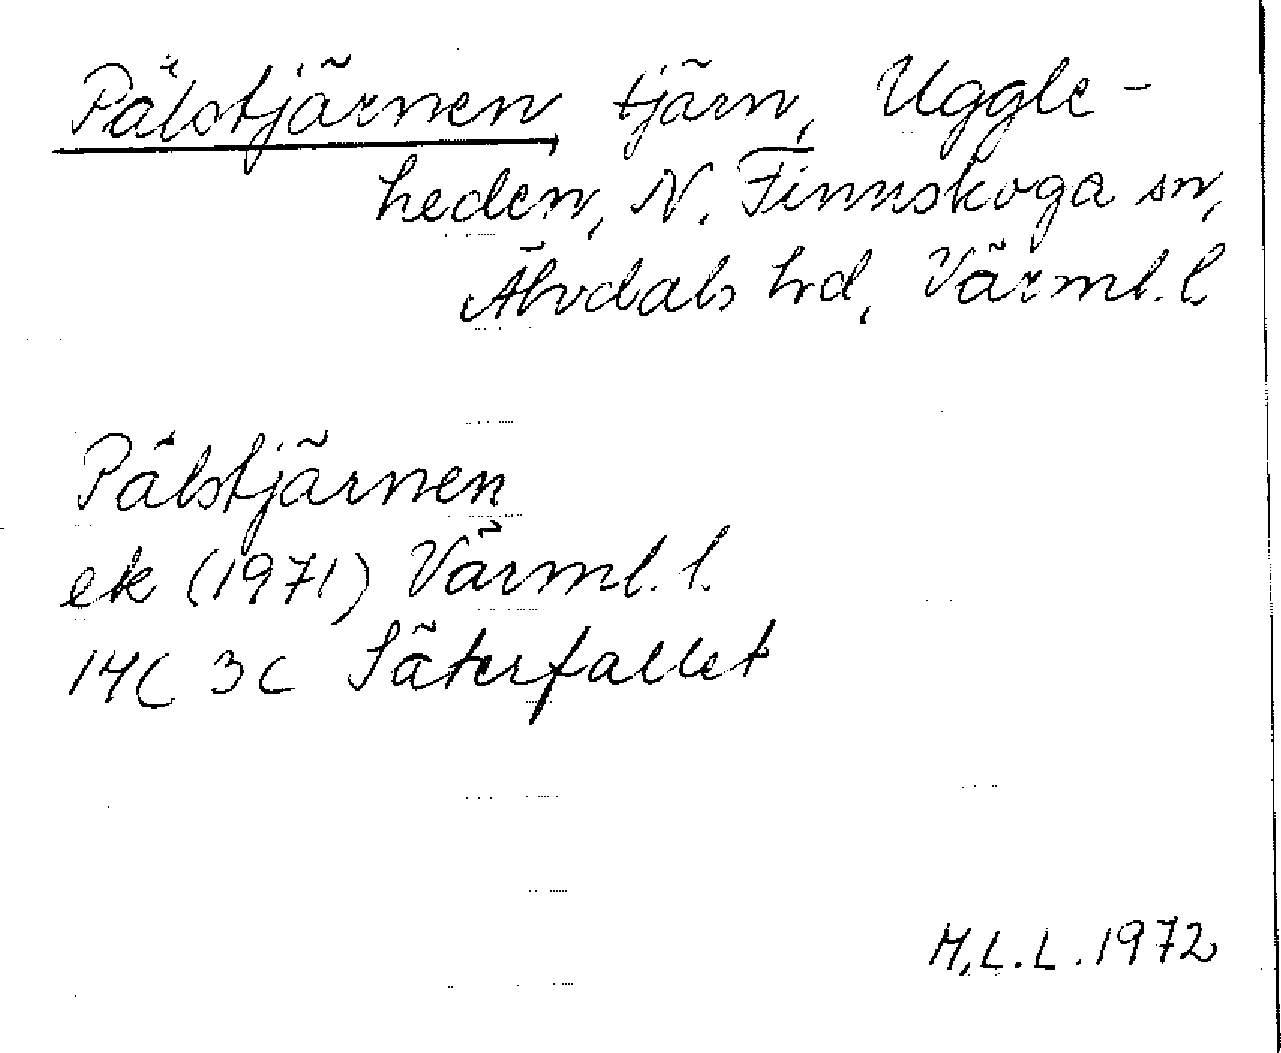 Pålstjärnen tjärn, Uggle-
heden, N. Finnskoga sn,
Älvdals hd, Värml. l
Pålstjärnen
ek (1971) Värml. l.
14C 3c Säterfallet
M.L.L. 1972